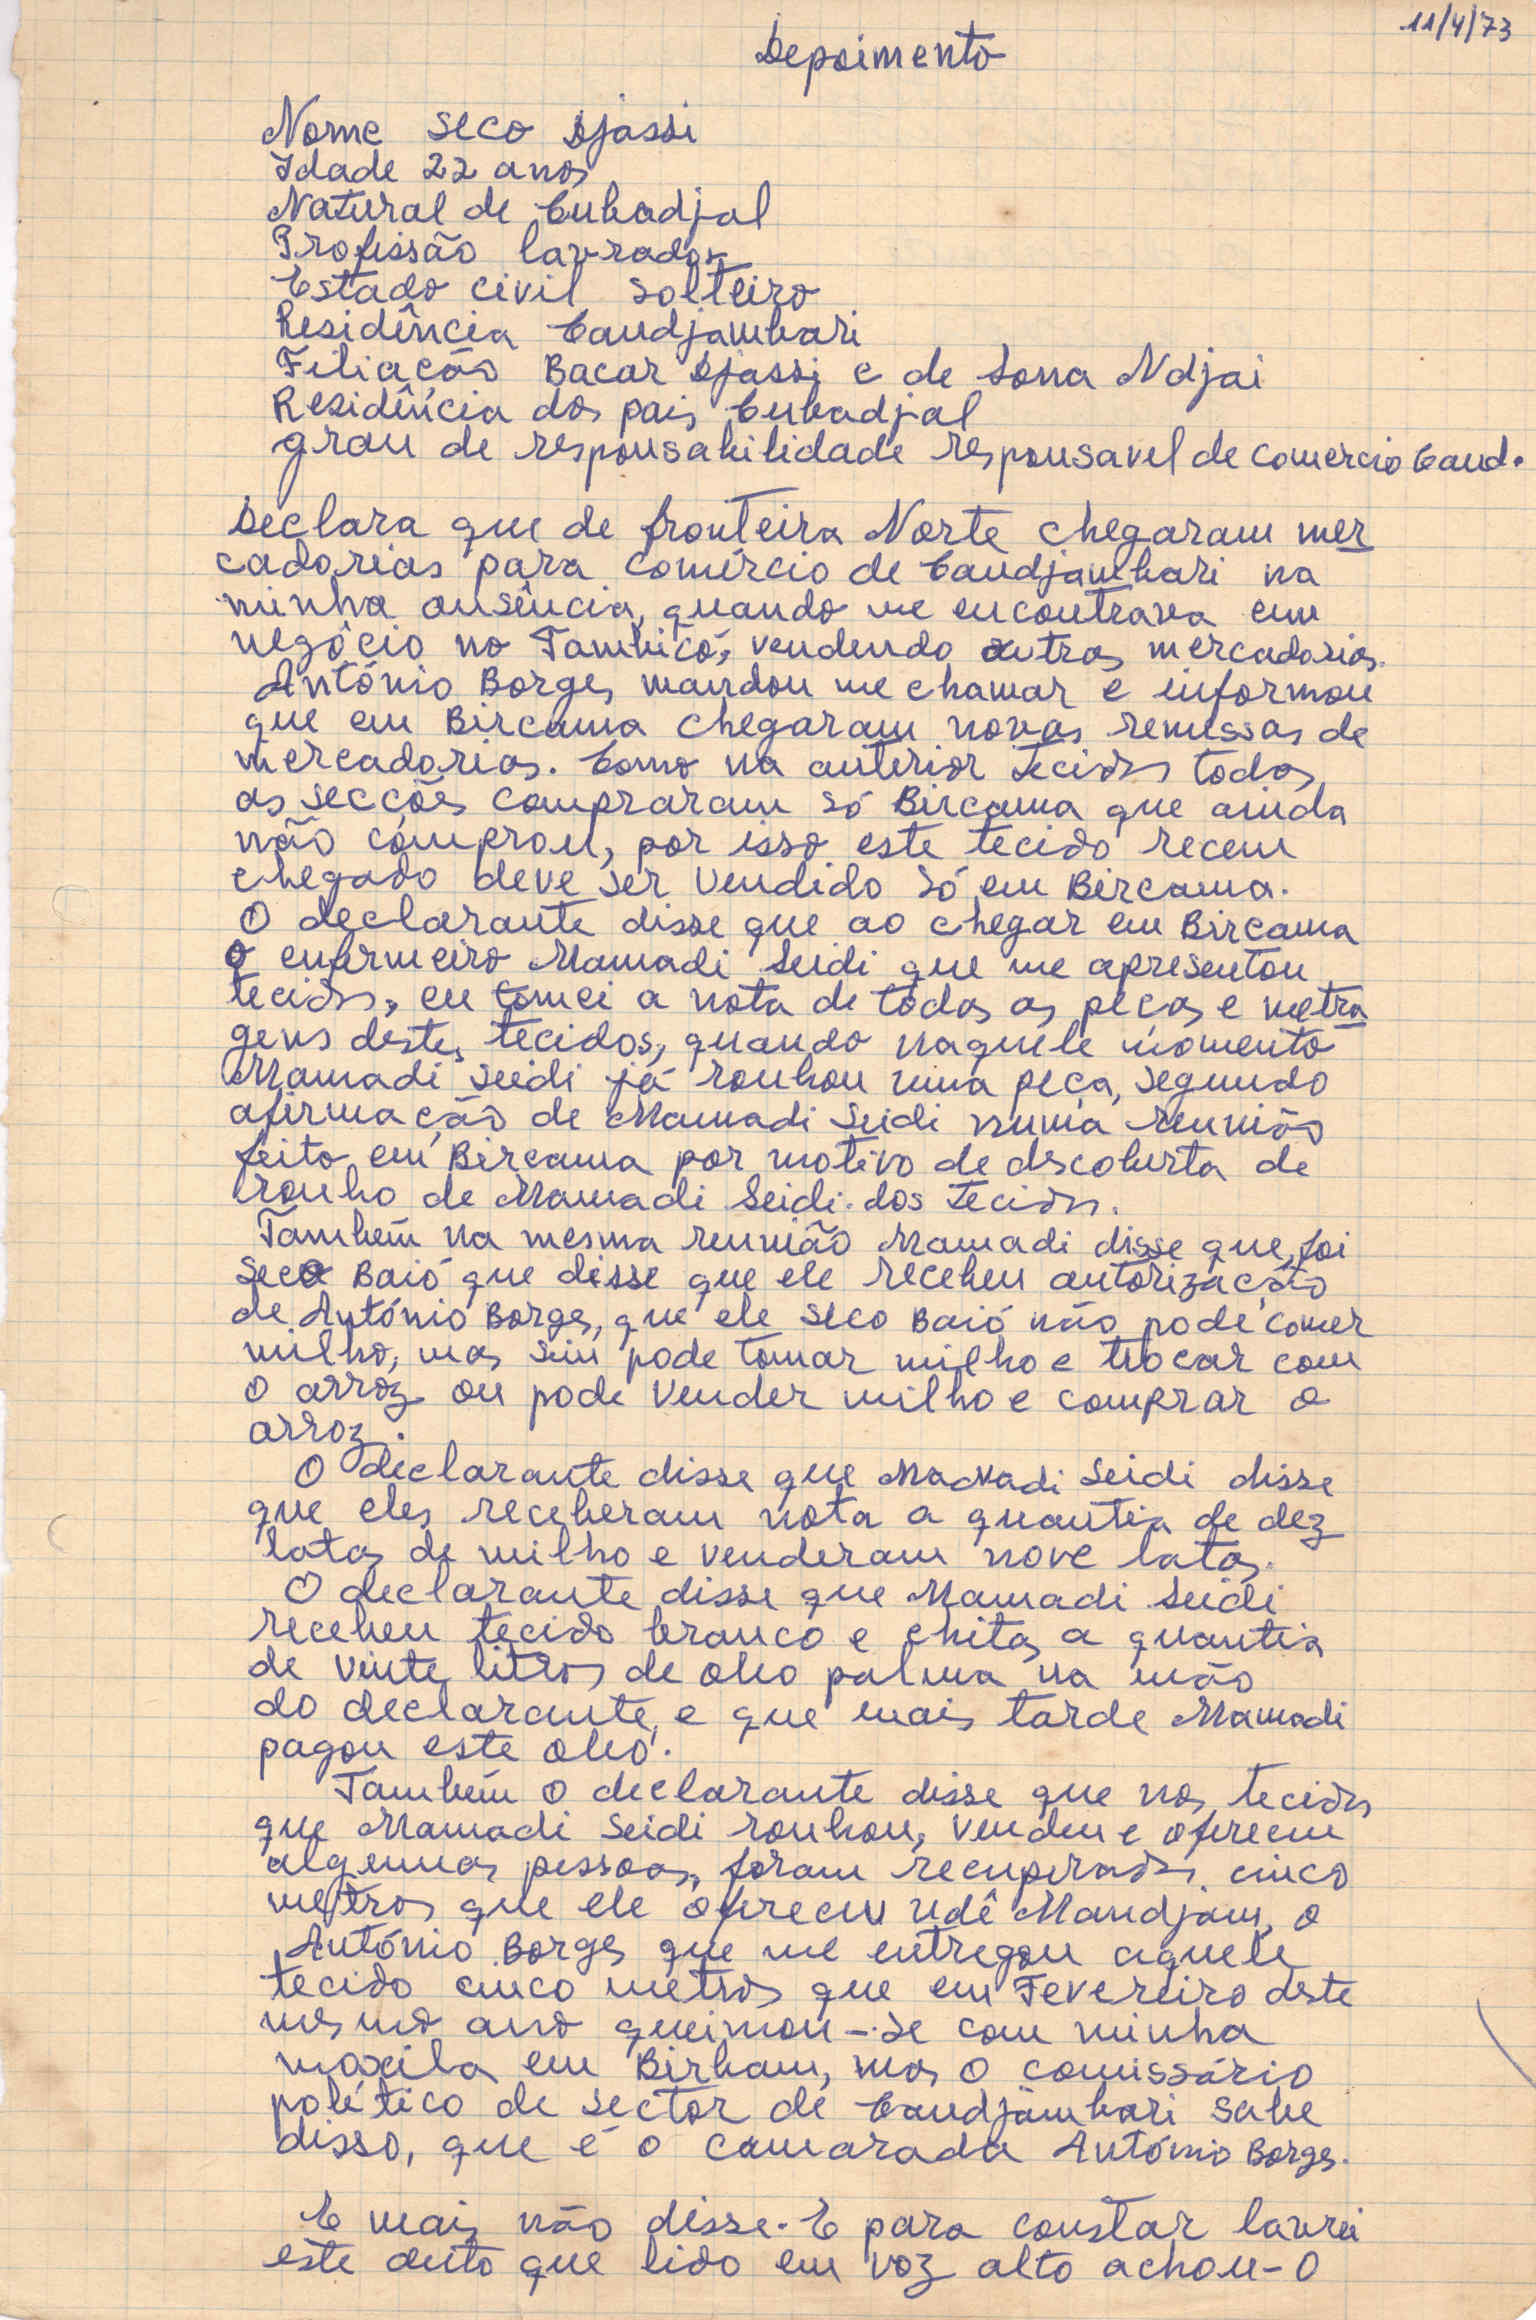 11/4/73
Depoimento
Nome Seco Djassi
Idade 22 anos
Natural de Cubadjal
Profissão lavrador
Estado civil solteiro
Residência Candjambari
Filiação Bacar Djassi e de Sona Ndjai
Residência dos pais Cubadjal
grau de responsabilidade responsavel de comércio Cand.
Declara que de fronteira Norte chegaram mer
cadorias para comércio de Candjambari na
minha ausência, quando me encontrava em
negócio no Tambicó, vendendo outras mercadorias.
António Borges mandou me chamar e informou
que em Bircama chegaram novas remessas de
mercadorias. Como na anterior tecidos todas
as secções compraram só Bircama que ainda
não comprou, por isso este tecido recem
chegado deve ser vendido só em Bircama.
O declarante disse que ao chegar em Bircama
o enfermeiro Mamadi Seidi que me apresentou
tecidos, eu tomei a nota de todas as peças e metra
gens destes tecidos, quando naquele momento
Mamadi Seidi já roubou uma peça, segundo
afirmação de Mamadi Seidi numa reunião
feito em Bircama por motivo de descoberta de
roubo de Mamadi Seidi dos tecidos.
Também na mesma reunião Mamadi disse que, foi
Seco Baió que disse que ele recebeu autorização
de António Borges, que ele Seco Baió não pode comer
milho, mas sim pode tomar milho e trocar com
o arroz ou pode vender milho e comprar o
arroz.
O declarante disse que Mamadi Seidi disse
que eles receberam nota a quantia de dez
latas de milho e venderam nove latas.
O declarante disse que Mamadi Seidi
recebeu tecido branco e chitas a quantia
de vinte litros de oleo palma na mão
do declarante, e que mais tarde Mamadi
pagou este oleo.
Também o declarante disse que nos tecidos
que Mamadi Seidi roubou, vendeu e ofereceu
algumas pessoas, foram recuperados cinco
metros que ele ofereceu Mandjam, o
António Borges que me entregou aquele
tecido cinco metros que em Fevereiro deste
mesmo ano queimou-se com minha
moxila em Birbam, mas o comissário
político de sector de Candjambari sabe
disso, que é o camarada António Borges.
E mais não disse. E para constar lavrei
este auto que lido em voz alto achou-o